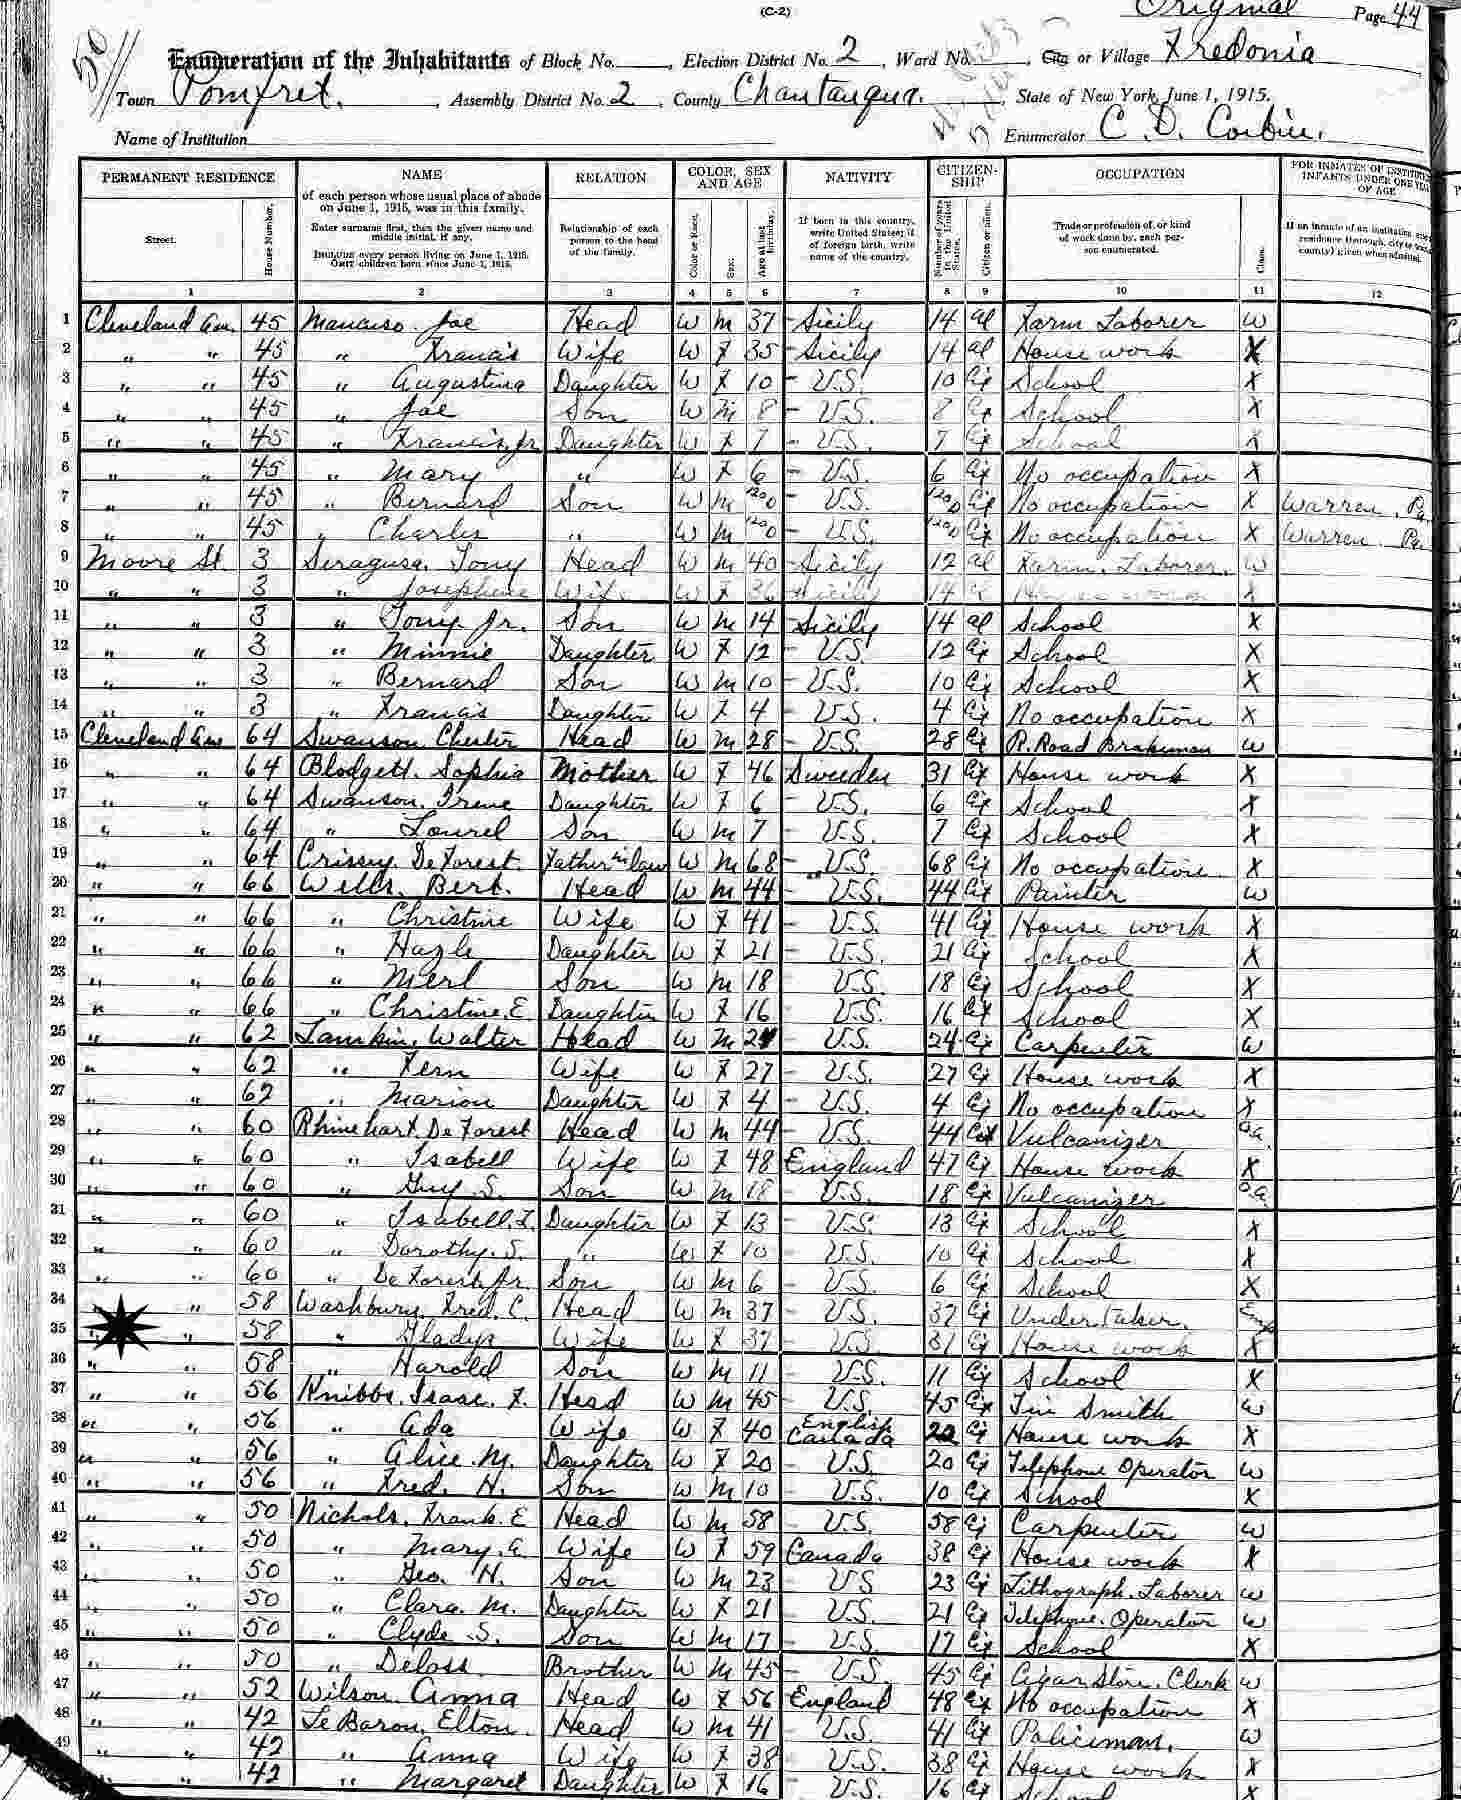 (C-2)
Original Page 44
50
Enumeration of the Inhabitants of Block No. , Election District No. 2 , Ward No. , City or Village Fredonia
Town Pomfret. , Assembly District No. 2 , County Chautauqua. , State of New York, June 1, 1915.
Name of Institution Enumerator C. D. Corbin.
PERMANENT RESIDENCE NAME RELATION COLOR, SEX AND AGE NATIVITY CITIZENSHIP OCCUPATION FOR INMATES OF INSTITUTIONS INFANTS UNDER ONE YEAR OF AGE
Street. House Number. of each person whose usual place of abode on June 1, 1915, was in this family. Enter surname first, then the given name and middle initial, if any. INCLUDE every person living on June 1, 1915. OMIT children born since June 1, 1915. Relationship of each person to the head of the family. Color or Race. Sex. Age at last birthday. If born in this country, write United States; if of foreign birth, write name of the country. Number of years in the United States. Citizen or alien. Trade or profession of, or kind of work done by, each person enumerated. Class. If an inmate of an institution residence (borough, city or town, county) given when admitted.
1 2 3 4 5 6 7 8 9 10 11 12
1 Cleveland Av. 45 Mancuso. Joe Head W M 37 Sicily 14 al Farm Laborer W
2 " " 45 " Francis Wife W F 35 Sicily 14 al House work X
3 " " 45 " Augustina Daughter W F 10 U.S. 10 Cit School X
4 " " 45 " Joe Son W M 8 U.S. 8 Cit School X
5 " " 45 " Francis, Jr Daughter W F 7 U.S. 7 Cit School X
6 45 " Mary " W F 6 U.S. 6 Cit No occupation X
7 " " 45 " Bernard Son W M U.S. Cit No occupation X Warren, Pa.
8 " " 45 " Charles " W M U.S. Cit No occupation X Warren. Pa
9 Moore St. 3 Siragusa. Tony Head W M 40 Sicily 12 al Farm. Laborer. W
10 " " 3 " Josephine Wife W F 36 Sicily 14 X
11 " " 3 " Tony Jr. Son W M 14 Sicily 14 al School X
12 " " 3 " Minnie Daughter W F 12 U.S. 12 Cit School X
13 " " 3 " Bernard Son W M 10 U.S. 10 Cit School X
14 " " 3 " Francis Daughter W F 4 U.S. 4 Cit No occupation X
15 Cleveland Ave 64 Swanson Chester Head W M 28 U.S. 28 Cit R. Road Brakeman W
16 " " 64 Blodgett. Sophia Mother W F 46 Sweeden 31 Cit House work X
17 " " 64 Swanson. Irene Daughter W F 6 U.S. 6 Cit School X
18 " " 64 " Lourel Son W M 7 U.S. 7 Cit School X
19 " " 64 Crissey. DeForest. Father in law W M 68 U.S. 68 Cit No occupation. X
20 " " 66 Wells. Bert. Head W M 44 U.S. 44 Cit Painter W
21 " " 66 " Christine Wife W F 41 U.S. 41 Cit House work X
22 " " 66 " Hazle Daughter W F 21 U.S. 21 Cit School X
23 " " 66 " Merl Son W M 18 U.S. 18 Cit School X
24 " " 66 " Christine. E. Daughter W F 16 U.S. 16 Cit School X
25 " " 62 Lamkin, Walter Head W M 24 U.S. 24 Cit Carpenter W
26 " " 62 " Fern Wife W F 27 U.S. 27 Cit House work X
27 " " 62 " Marion Daughter W F 4 U.S. 4 Cit No occupation X
28 " " 60 Rhinehart. DeForest Head W M 44 U.S. 44 Cit Vulcanizer O.A.
29 " " 60 " Isabell Wife W F 48 England 47 Cit House work X
30 " " 60 " Guy S. Son W M 18 U.S. 18 Cit Vulcanizer O.A.
31 " " 60 " Isabell. I. Daughter W F 13 U.S. 13 Cit School X
32 " " 60 " Dorothy. S. " W F 10 U.S. 10 Cit School X
33 " " 60 " DeForest Jr. Son W M 6 U.S. 6 Cit School X
34 " 58 Washburn. Fred. C. Head W M 37 U.S. 37 Cit Under Taker. Emp
35 " " 58 " Gladys Wife W F 37 U.S. 37 Cit House work X
36 " " 58 " Harold Son W M 11 U.S. 11 Cit School X
37 " " 56 Knibbs. Isaac. F. Head W M 45 U.S. 45 Cit Tin Smith W
38 " " 56 " Ada Wife W F 40 English Canada 22 Cit House work X
39 " " 56 " Alice. M. Daughter W F 20 U.S. 20 Cit Telephone Operator W
40 " " 56 " Fred. H. Son W M 10 U.S. 10 Cit School X
41 " " 50 Nichols. Frank. E Head W M 58 U.S. 58 Cit Carpenter W
42 " " 50 " Mary. A. Wife W F 59 Canada 38 Cit House work X
43 " " 50 " Geo. H. Son W M 23 U.S 23 Cit Lithograph. Laborer W
44 " " 50 " Clara. M. Daughter W F 21 U.S. 21 Cit Telephone. Operator W
45 " " 50 " Clyde. S. Son W M 17 U.S. 17 Cit School X
46 " " 50 " Deloss. Brother W M 45 U.S. 45 Cit Cigar Store. Clerk W
47 " " 52 Wilson. Anna Head W F 56 England 48 Cit No occupation X
48 " " 42 LeBaron. Elton. Head W M 41 U.S. 41 Cit Policeman. W
49 " " 42 " Anna Wife W F 38 U.S. 38 Cit House work X
" " 42 " Margaret Daughter W F 16 U.S. 16 Cit School X